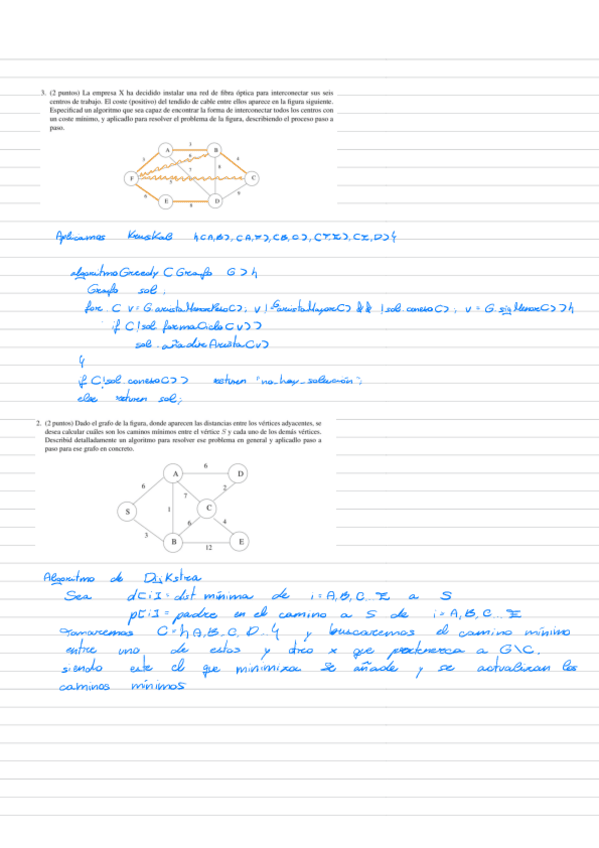 3. (2 puntos) La empresa X ha decidido instalar una red de fibra óptica para interconectar sus seis
centros de trabajo. El coste (positivo) del tendido de cable entre ellos aparece en la figura siguiente.
Especificad un algoritmo que sea capaz de encontrar la forma de interconectar todos los centros con
un coste mínimo, y aplicadlo para resolver el problema de la figura, describiendo el proceso paso a
paso.
A
B
F
C
E
D
Aplicamos Kruskal {(A,B), (A,F), (B,C), (F,E), (E,D)}
algoritmoGreedy (Grafo G){
Grafo sol;
if (!sol.formaCiclo(v))
sol.añadirArista(v)
}
if (!sol.conexo()) return "no_hay_solución";
else return sol;
2. (2 puntos) Dado el grafo de la figura, donde aparecen las distancias entre los vértices adyacentes, se
desea calcular cuáles son los caminos mínimos entre el vértice S y cada uno de los demás vértices.
Describid detalladamente un algoritmo para resolver ese problema en general y aplicadlo paso a
paso para ese grafo en concreto.
6
A
D
6
7
2
S
1
C
3
6
4
B
E
12
Algoritmo de Dijkstra
Sea d[i] = dist mínima de i = A, B, C... E a S
p[i] = padre en el camino a S de i = A, B, C... E
Tomaremos C = {A, B, C, D..} y buscaremos el camino mínimo
entre uno de estos y otro x que pertenezca a G\C.
siendo este el que minimiza se añade y se actualizan los
caminos mínimos